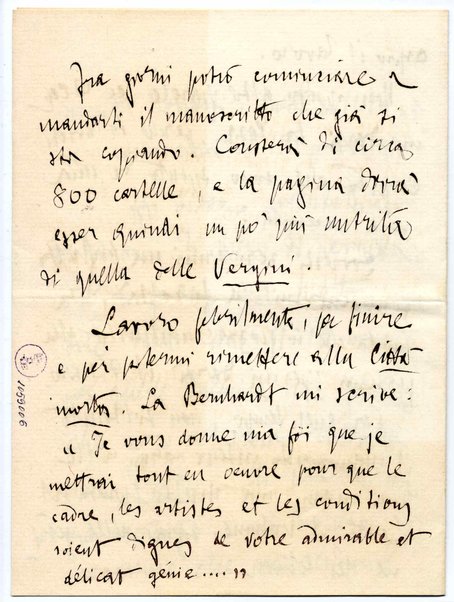 Fra giorni potrò cominciare a
mandarti il manoscritto che già si
sta copiando. Consterà di circa
800 cartelle, e la pagina dovrà
esser quindi un po' più nutrita
di quella delle Vergini.
Lavoro febrilmente, per finire
e per potermi rimettere alla Città
morta. La Bernhardt mi scrive:
"Je vous donne ma foi que je
mettrai tout en oeuvre pour que le
cadre, les artistes et les conditions
soient dignes de votre admirable et
délicat génie...."
1059006